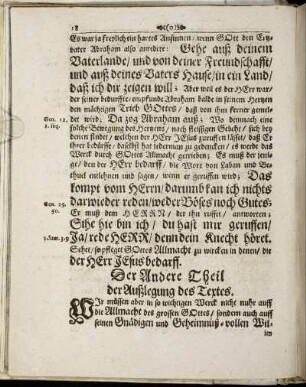 18 )(0)(
Es war ja freylich ein hartes Ansinnen, wenn GOtt den Ertz-
vater Abraham also anredete: Gehe auß deinem
Vaterlande, und von deiner Freundschafft
und auß deines Vaters Hause, in ein Land/
daß ich dir zeigen will; Aber weil es der HErr war,
der seiner bedurffte, empfunde Abraham balde in seinem Hertzen
den mächtigen Trieb GOttes, daß von ihm ferner gemel-
Gen. 12. det wird: Da zog Abraham auß; Wo demnach eine
1. sqq. solche Bewegung des Hertzens, nach fleissigem Gebethe, sich bey
denen findet, welchen der HErr JEsus zuruffen lässet, daß Er
ihrer bedürffe, daselbst hat iedermañ zu gedencken, es werde das
Werck durch GOttes Allmacht getrieben; Es muß der jeni-
ge, den der HErr bedarff, die Wort von Laban und Be-
thuel entlehnen und sagen, wenn er geruffen wird: Das
kompt vom HErrn/ darumb kan ich nichts
Gen. 25. darwieder reden/ weder Böses noch Gutes;
50. Er muß dem HERRN, der ihn ruffet, antworten:
Sihe hie bin ich, du hast mir geruffen/
1. Sam. 3. 9 Ja/ rede HERR, denn dein Knecht höret.
Sihet, so pfleget GOttes Allmacht zu wircken in denen, die
der HErr JEsus bedarff.
Der Andere Theil
der Außlegung des Textes.
WIr müssen aber in so wichtigen Werck nicht nuhr auff
die Allmacht des grossen GOttes, sondern auch auff
seinen Gnädigen und Geheimniß-vollen Wil-
len